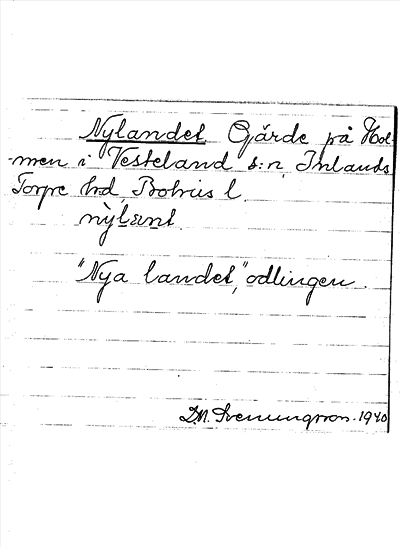 Nylandet Gärde på Hol-
men i Vesteland s:n, Inlands
Torpe hd, Bohus l.
nỳlænt.
"Nya landet," odlingen.
D.M. Svenungsson. 1940